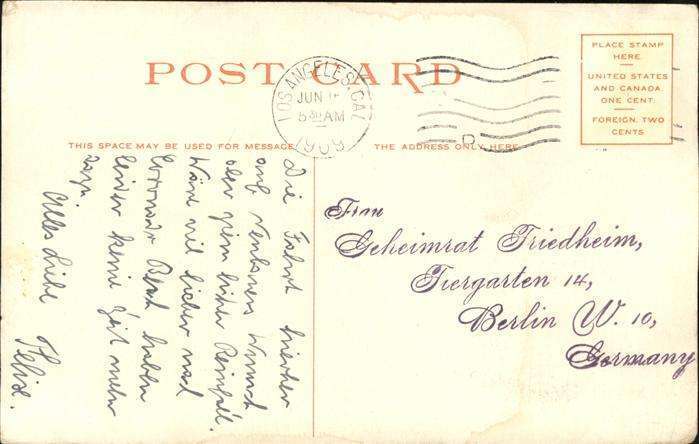 POST CARD
LOS ANGELES, CAL.
JUN
AM
1909
D
PLACE STAMP
HERE
UNITED STATES
AND CANADA
ONE CENT.
FOREIGN, TWO
CENTS
THIS SPACE MAY BE USED FOR MESSAGE
THE ADDRESS ONLY HERE
Die Fahrt hierher
auf Wunsch
aber ein Reinfall.
viel lieber nach
haben
leider keine Zeit mehr
dazu.
Alles Liebe
Felix.
Frau
Geheimrat Friedheim,
Tiergarten 14,
Berlin W. 10,
Germany